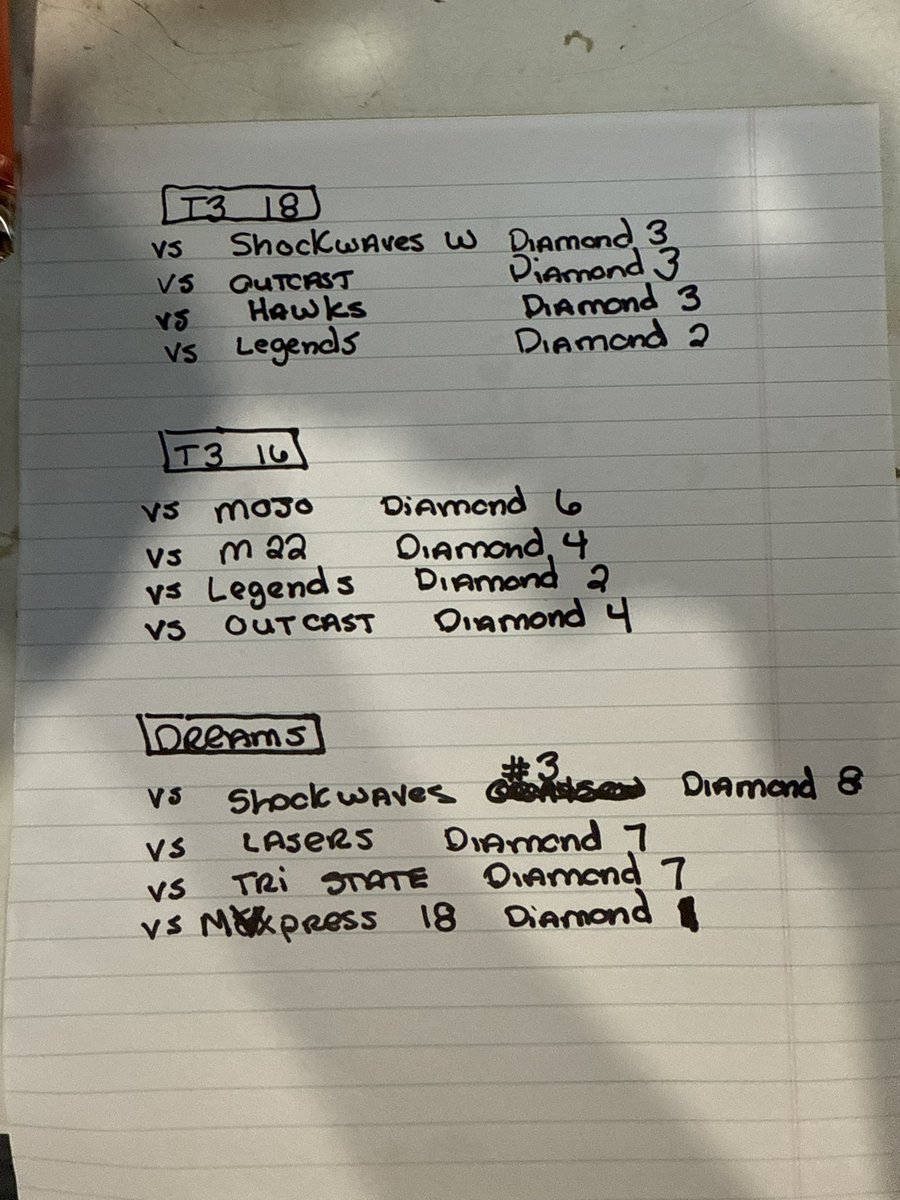 T3 18
vs Shockwaves W Diamond 3
vs OUTCAST Diamond 3
vs Hawks Diamond 3
vs Legends Diamond 2
T3 16
vs MOJO Diamond 6
vs M22 Diamond 4
vs Legends Diamond 2
vs OUTCAST Diamond 4
DREAMS
#3
vs Shockwaves Diamond 8
vs LASERS Diamond 7
vs TRi STATE Diamond 7
vs 18 Diamond